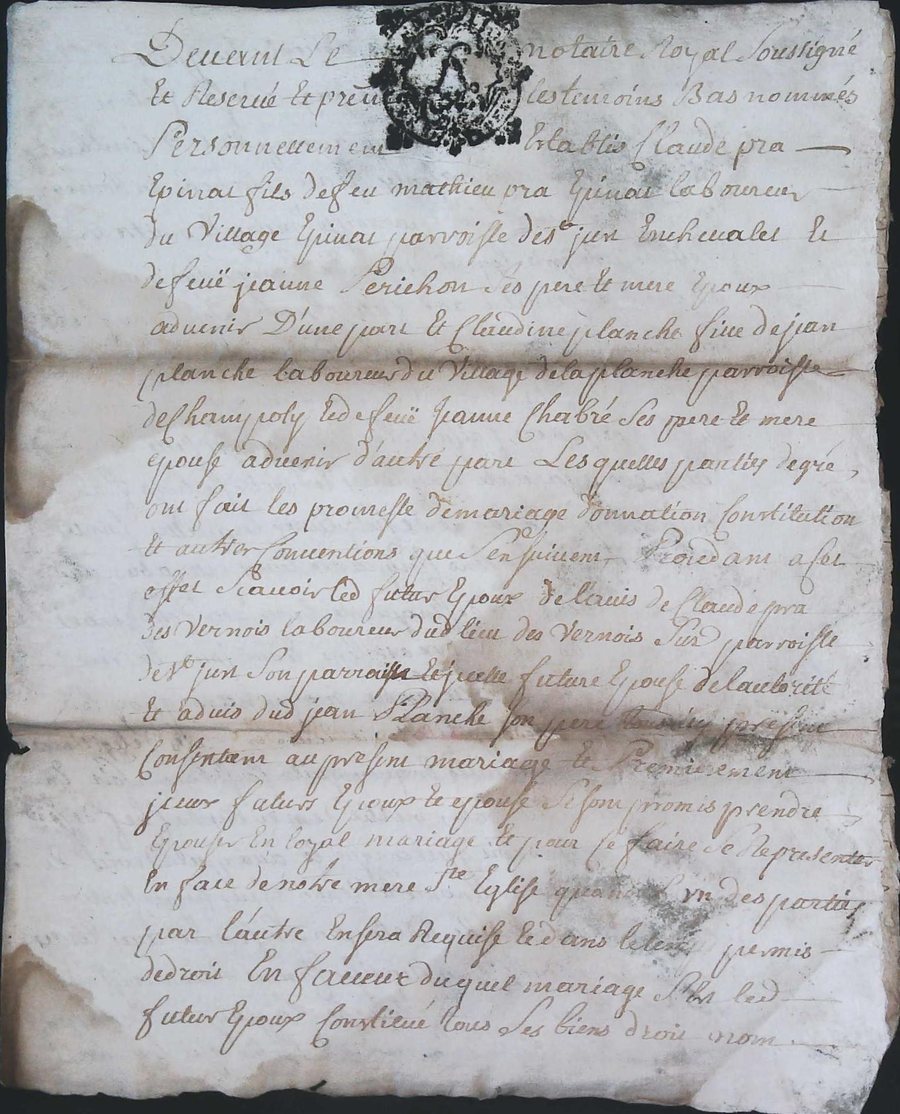 Devant Le notaire Royal Soussigné
Et Reservé Et les temoins Bas nommés
Personnellement Establis Claude pra
Epinat fils de feu mathieu pra Epinat laboureur
du Village Epinat parroisse de St jun Enchevalet Et
de feuë jeanne Perichon Ses pere Et mere Epoux
advenir D'une part Et Claudine planche fille de jean
planche laboureur du Village de la planche parroisse
de Champoly Et de feuë Jeanne Chabré Ses pere Et mere
epouse advenir d'autre part Lesquelles parties de gré
ont fait les promesse de mariage donnation Constitution
Et autres Conventions que S'en suivent a Cet
effet Scavoir led futur Epoux de l'avis de Claude pra
des Vernois laboureur dud lieu des Vernois Susd parroisse
de St jun Son parrain Et jcelle future Epouse de l'autorité
Et advis dud jean Planche Son pere
Consentant au present mariage Et Premierement
jceux futurs Epoux Et epouse Se sont promis prendre
Epouser En loyal mariage Et pour Se faire Se Representer
En face de notre mere Ste Eglise quand vn des parties
par l'autre En sera Requise Et dans le permis
de droit En faveur duquel mariage Sest led
futur Epoux Constitué tous Ses biens droit nom